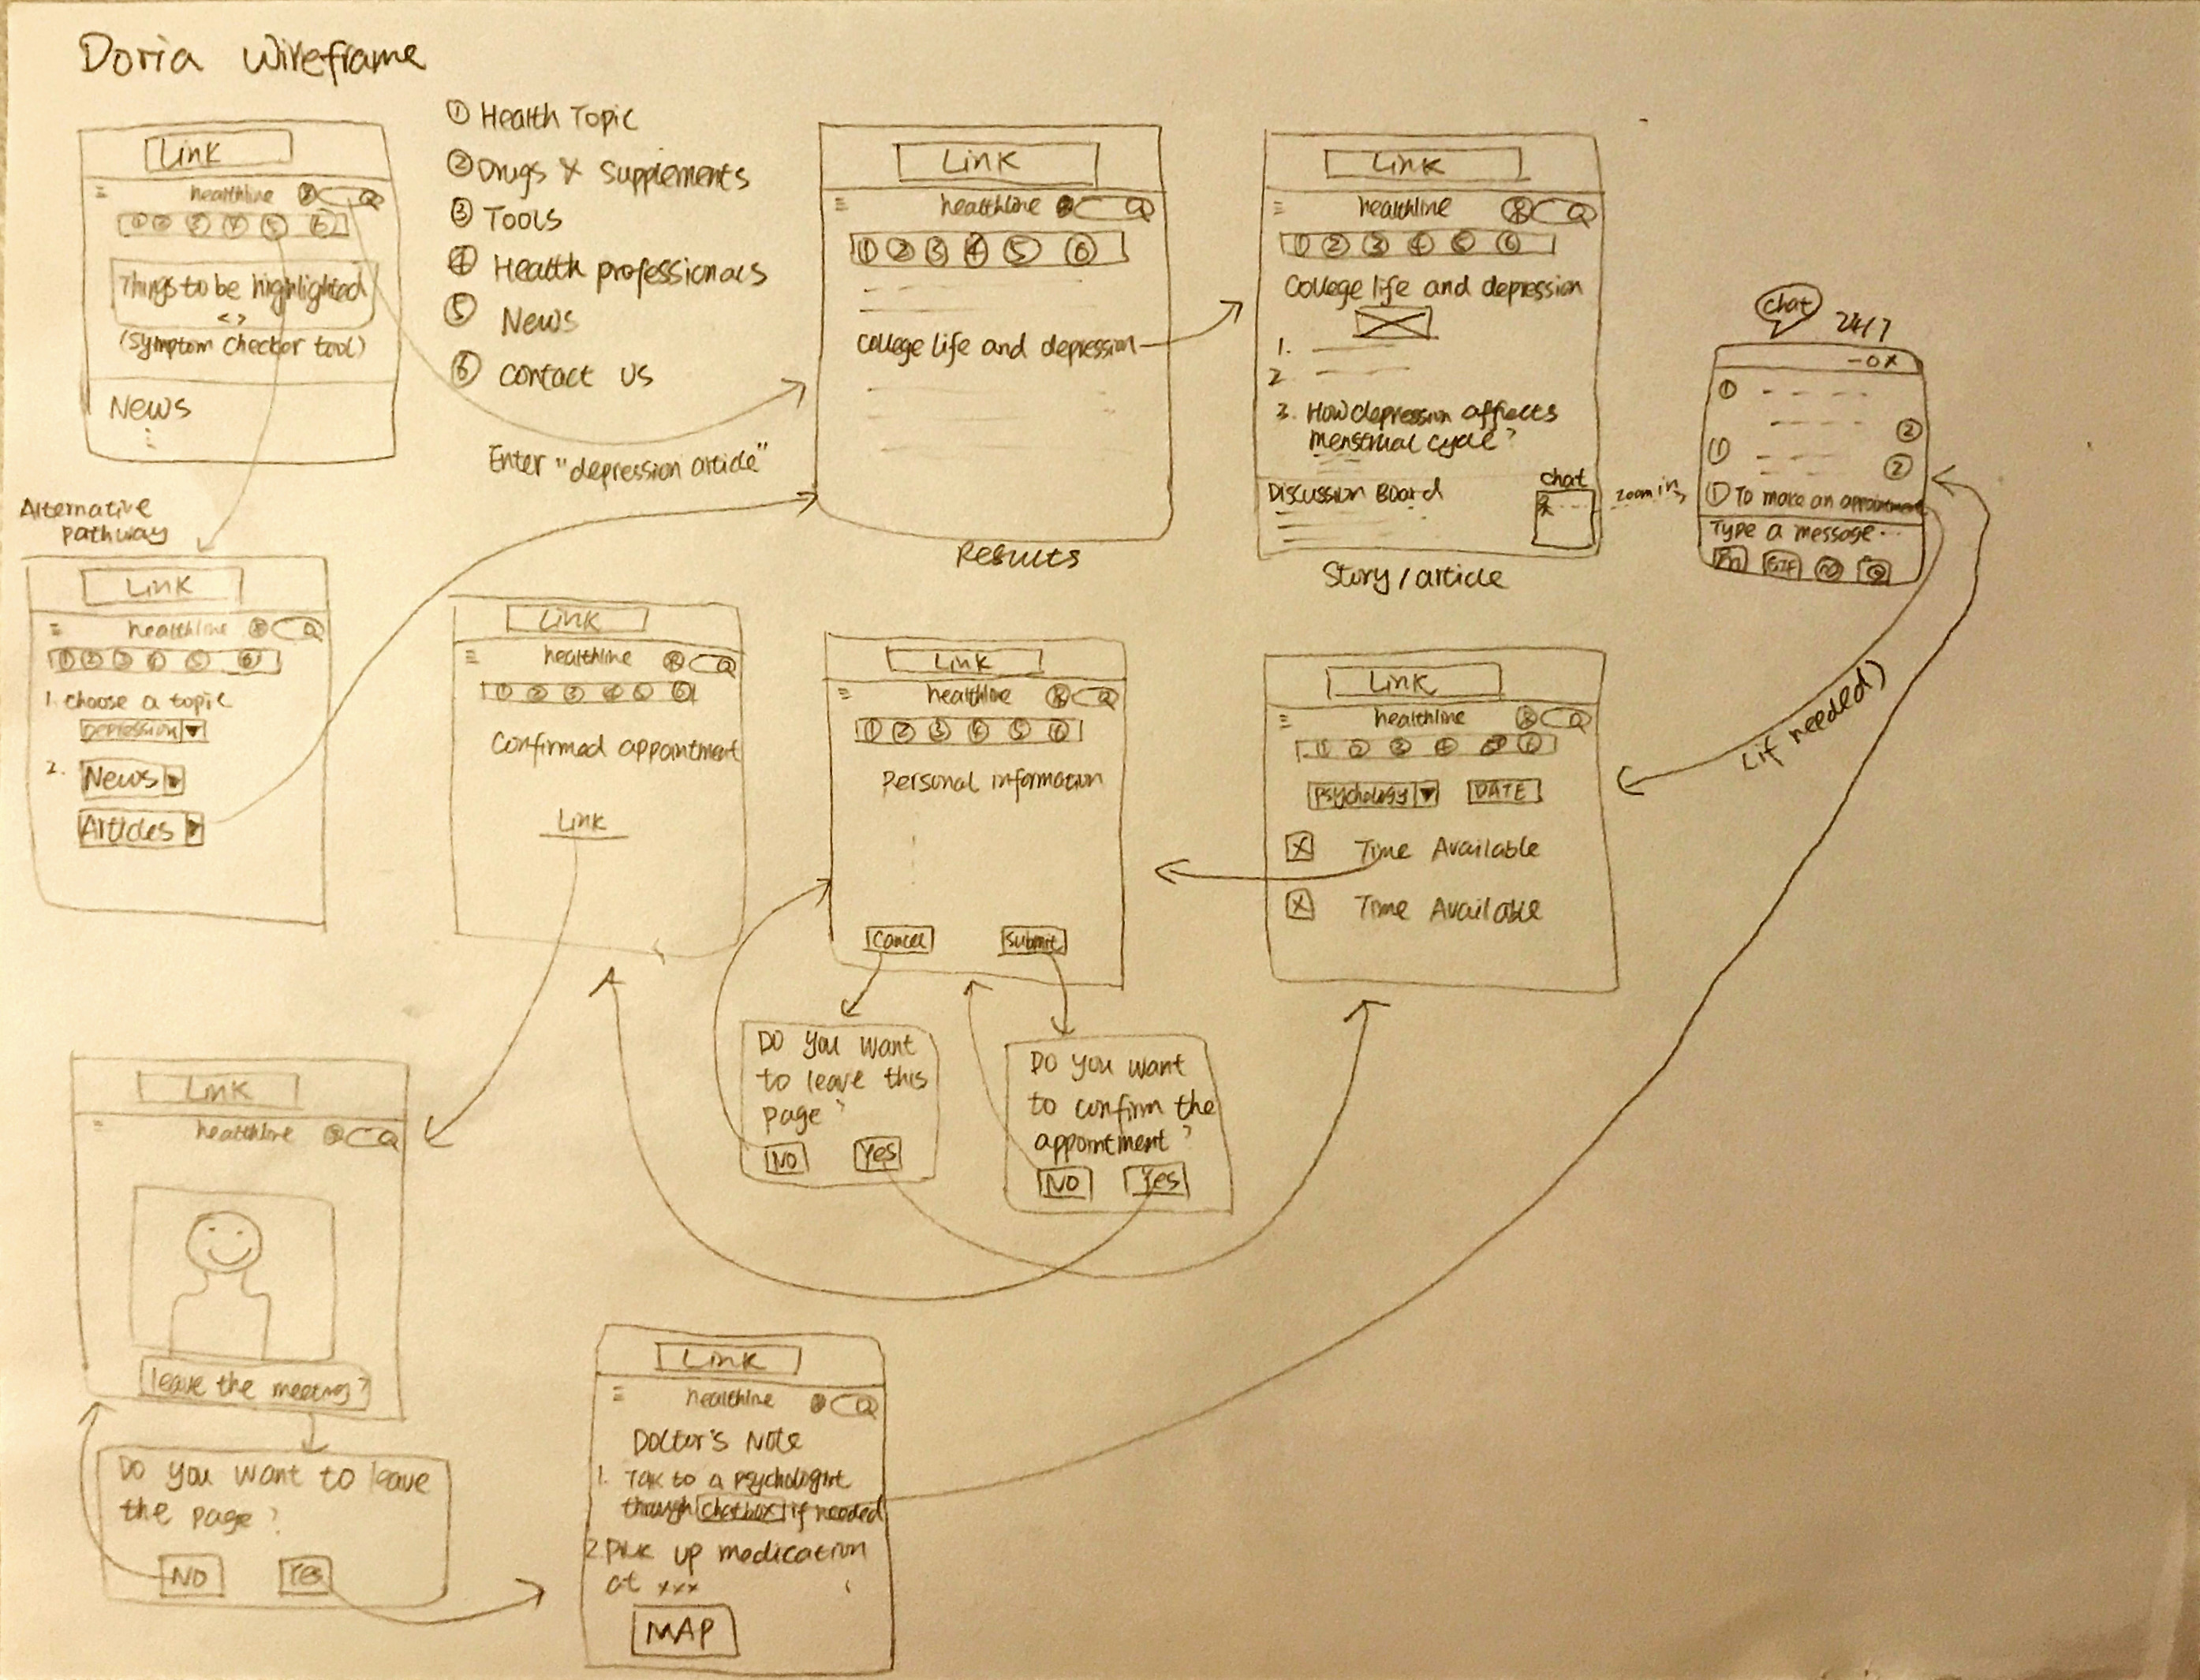 Doria Wireframe
Link
healthline
① ② ③ ④ ⑤ ⑥
Things to be highlighted
< >
(Symptom checker tool)
News
① Health Topic
② Drugs & Supplements
③ Tools
④ Health professionals
⑤ News
⑥ Contact us
Enter "depression article"
Link
healthline
① ② ③ ④ ⑤ ⑥
College life and depression
Results
Link
healthline
① ② ③ ④ ⑤ ⑥
College life and depression
1.
2.
3. How depression affects
menstrual cycle?
Discussion Board
chat
Story / article
zoom in
chat
24/7
- o x
①
②
①
②
① To make an appointment
Type a message...
GIF
(if needed)
Alternative
pathway
Link
healthline
① ② ③ ④ ⑤ ⑥
1. choose a topic
Depression
2.
News
Articles
Link
healthline
① ② ③ ④ ⑤ ⑥
Confirmed appointment
Link
Link
healthline
① ② ③ ④ ⑤ ⑥
Personal information
Cancel
Submit
Link
healthline
① ② ③ ④ ⑤ ⑥
Psychology
DATE
X Time Available
X Time Available
Do you want
to leave this
page?
No
Yes
Do you want
to confirm the
appointment?
No
Yes
Link
healthline
leave the meeting?
Do you want to leave
the page?
No
Yes
Link
healthline
Doctor's Note
1. Talk to a psychologist
through chatbox if needed
2. Pick up medication
at xxx
MAP